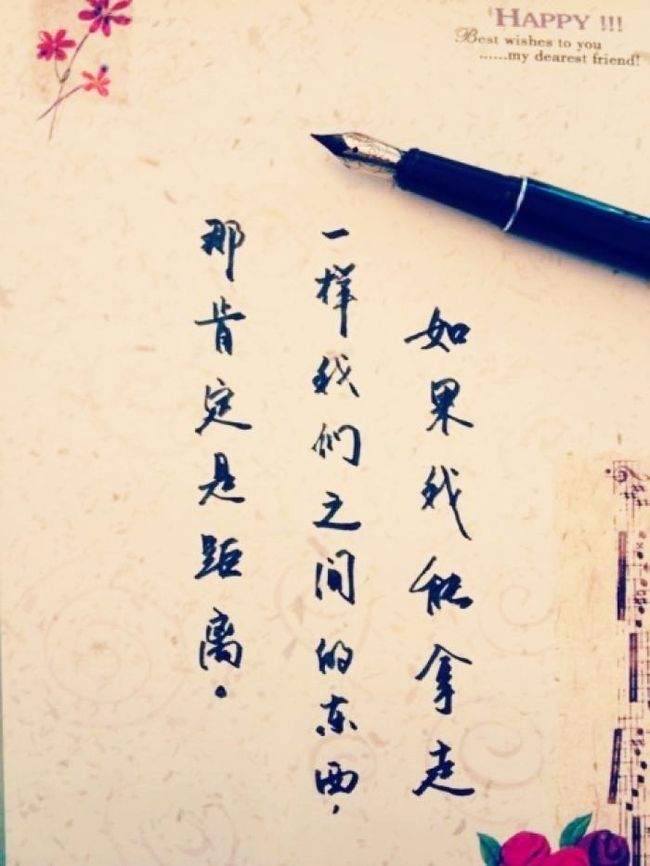 HAPPY !!!
Best wishes to you
......my dearest friend!
如果我能拿走
一样我们之间的东西，
那肯定是距离。